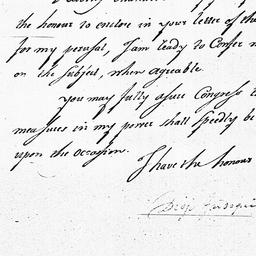 the honour to enclose in your letter of the
for my perusal, I am ready to Confer
on the Subject, when agreable.
you may fully assure Congress
measures in my power shall speedly be
upon the Occasion.
I have the honour